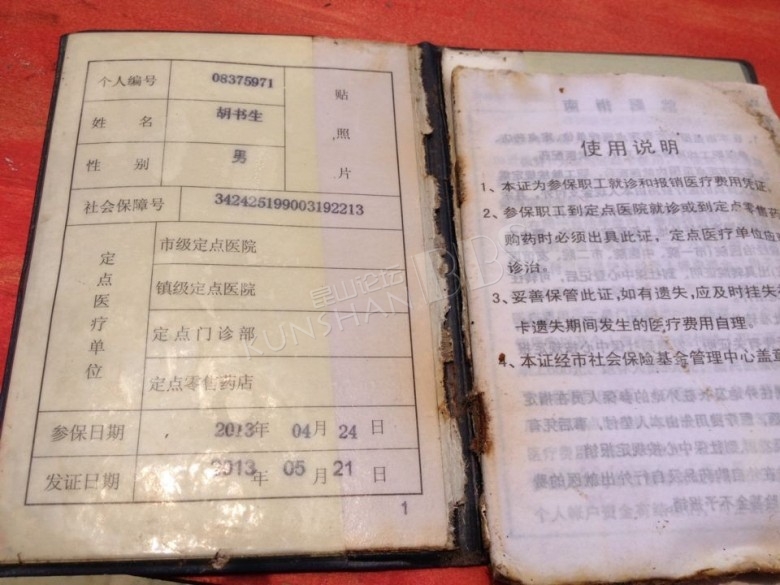 个人编号 08375971
姓名 胡书生
性别 男
贴照片
社会保障号 342425199003192213
定点医疗单位
市级定点医院
镇级定点医院
定点门诊部
定点零售药店
参保日期 2013年 04月 24日
发证日期 2013年 05月 21日
1
使用说明
1、本证为参保职工就诊和报销医疗费用凭证
2、参保职工到定点医院就诊或到定点零售
购药时必须出具此证，定点医疗单位应
诊治。
3、妥善保管此证,如有遗失,应及时挂失
卡遗失期间发生的医疗费用自理。
4、本证经市社会保险基金管理中心盖章
昆山论坛
KUNSHAN BBS